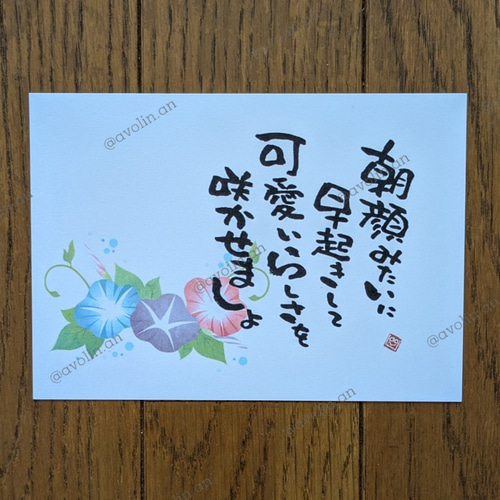 朝顔みたいに
早起きして
可愛いらしさを
咲かせましょ
@avolin.an
@avolin.an
@avolin.an
@avolin.an
@avolin.an
@avolin.an
@avolin.an
@avolin.an
@avolin.an